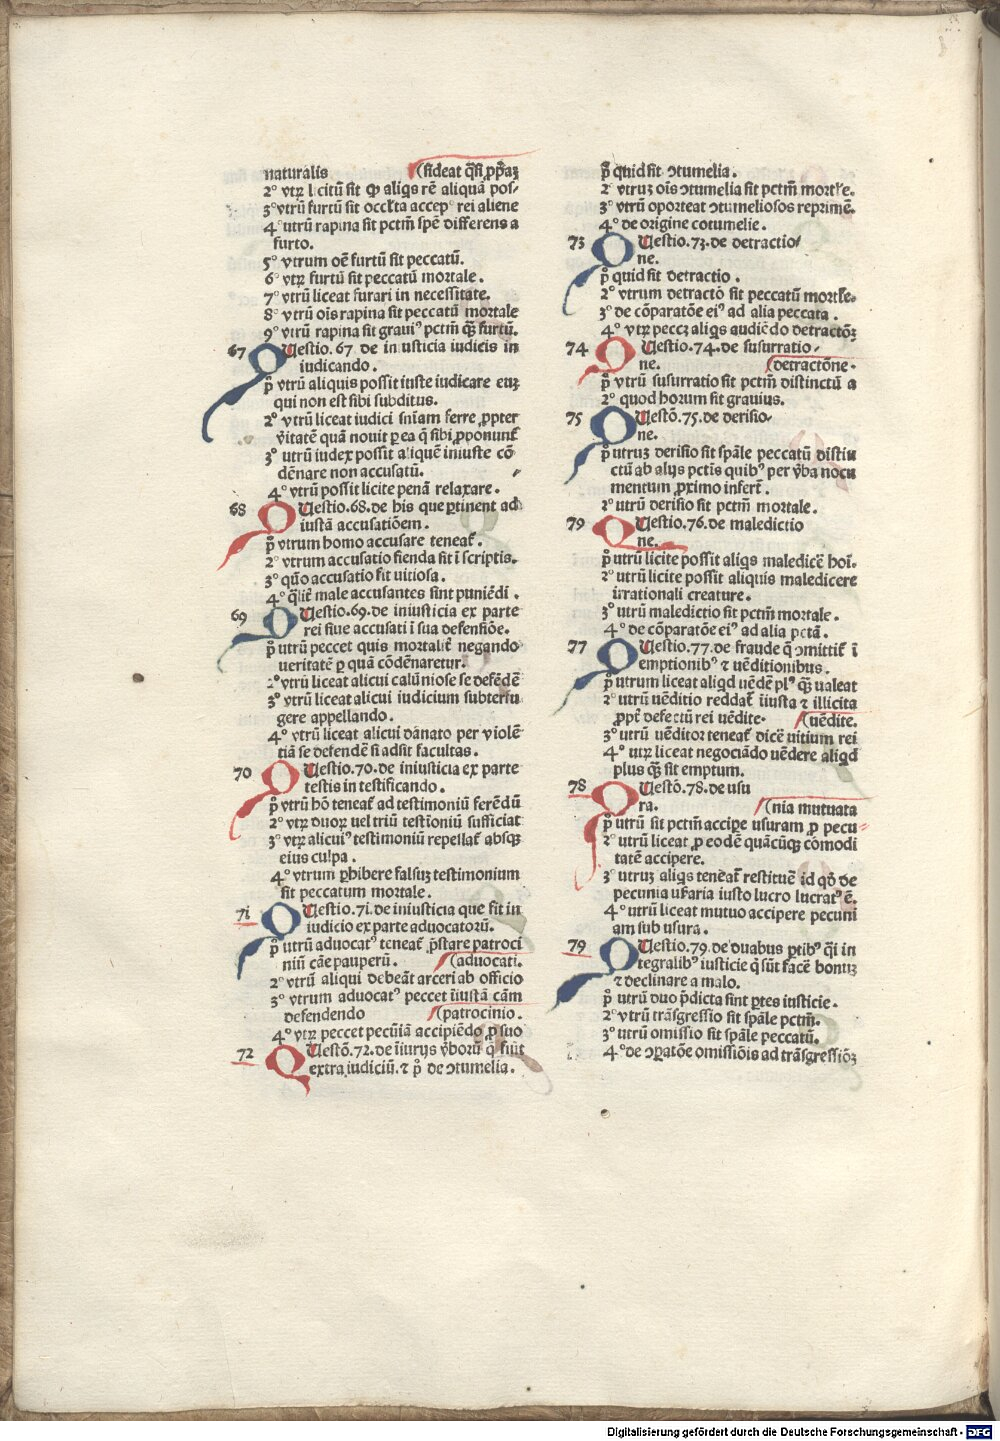 naturalis (sideat q̃si ꝓpriaʒ
2° vtrꝝ licitũ sit ꝙ aliqͥs rẽ aliquã pos-
3° vtrũ furtũ sit occlta accep° rei aliene
4° utrũ rapina sit pctm̃ spẽ differens a
furto.
5° vtrum oẽ furtũ sit peccatũ.
6° vtrꝝ furtũ sit peccatũ mortale.
7° vtrũ liceat furari in necessitate.
8° vtrũ oĩs rapina sit peccatũ mortale
9° vtrũ rapina sit graui⁹ pctm̃ q̃ʒ furtũ.
67 QUestio.67 de iniusticia iudicis in
iudicando.
p̊ vtrũ aliquis possit iuste iudicare euʒ
qui non est sibi subditus.
2° vtrũ liceat iudici sñiam ferre ꝓpter
v̾itatẽ quã nouit ꝑ ea q̃ sibi ꝓponunt̃
3° utrũ iudex possit aliquẽ iniuste cõ
dẽnare non accusatũ.
4° vtrũ possit licite penã relaxare.
68 QUestio.68.de his que ꝑtinent ad
iustã accusatiõem.
p̊ vtrum homo accusare teneat̃.
2° vtrum accusatio fienda sit ĩ scriptis.
3° quõ accusatio fit uitiosa.
4° q̃lit̃ male accusantes sint puniẽdi.
69 QUestio.69.de iniusticia ex parte
rei siue accusati ĩ sua defensiõe.
p̊ utrũ peccet quis mortalit̃ negando
ueritatẽ ꝑ quã cõdẽnaretur.
2° vtrũ liceat alicui calũniose se defẽdẽ
3° vtrũ liceat alicui iudicium subterfu
gere appellando.
4° vtrũ liceat alicui dãnato per violẽ
tiã se defendẽ si adsit facultas.
70 QUestio.70.de iniusticia ex parte
testis in testificando.
p̊ vtrũ hõ teneat̃ ad testimoniũ ferẽdũ
2° vtrꝝ duoꝝ uel triũ testĩoniũ sufficiat
3° vtrꝝ alicui⁹ testimoniũ repellat̃ absqꝫ
eius culpa.
4° vtrum ꝓhibere falsuʒ testimonium
sit peccatum mortale.
71 QUestio.71.de iniusticia que fit in
iudicio ex parte aduocatorũ.
p̊ utrũ aduocat⁹ teneat̃ p̃stare patroci
niũ cãe pauperũ. (aduocati.
2° vtrũ aliqui debeãt arceri ab officio
3° vtrum aduocat⁹ peccet ĩiustã cãm
defendendo (patrocinio.
4° vtrꝝ peccet pecũiã accipiẽdo ꝓ suo
72 QUestõ.72.de ĩiurijs v̾borũ q̃ fiũt
extra iudiciũ.⁊ p̊ de ↄtumelia.
p̊ quid sit ↄtumelia.
2° vtruʒ oĩs ↄtumelia sit pctm̃ mortl̃e.
3° vtrũ oporteat ↄtumeliosos reprimẽ.
4° de origine cõtumelie.
73 QUestio.73.de detractio/
ne.
p̊ quid sit detractio.
2° vtrum detractõ sit peccatũ mortl̃e.
3° de cõparatõe ei⁹ ad alia peccata.
4° vtꝝ peccʒ aliqͥs audiẽdo detractõʒ
74 QUestio.74.de susurratio/
ne. (detractõne.
p̊ vtrũ susurratio sit pctm̃ distinctũ a
2° quod horum sit grauius.
75 QUestõ.75.de derisio/
ne.
p̊ utruʒ derisio sit sp̃ale peccatũ distin
ctũ ab alijs pctĩs quib⁹ per v̾ba nocu
mentum ꝓximo infert̃.
2° utrũ derisio sit pctm̃ mortale.
79 QUestio.76.de maledictio
ne.
p̊ utrũ licite possit aliqͥs maledicẽ hoĩ.
2° utrũ licite possit aliquis maledicere
irrationali creature.
3° utrũ maledictio sit pctm̃ mortale.
4° de cõparatõe ei⁹ ad alia pctã.
77 QUestio.77.de fraude q̃ ↄmittit̃ ĩ
emptionib⁹ ⁊ uẽditionibus.
p̊ utrum liceat aliqͥd uẽdẽ pl⁹ q̃ʒ ualeat
2° utrũ uẽditio reddat̃ ĩiusta ⁊ illicita
ꝓpt̃ defectũ rei uẽdite. (uẽdite.
3° utrũ uẽditor teneat̃ dicẽ uitium rei
4° utꝝ liceat negociãdo uẽdere aliqͥd
plus q̃ʒ sit emptum.
78 QUestõ.78.de usu
ra. (nia mutuata
p̊ utrũ sit pctm̃ accipe usuram ꝓ pecu-
2° utrũ liceat ꝓ eodẽ quãcũqꝫ cõmodi
tatẽ accipere.
3° utruʒ aliqͥs teneat̃ restituẽ id qd̾ de
pecunia usuraria iusto lucro lucrat⁹ ẽ.
4° utrũ liceat mutuo accipere pecuni
am sub usura.
79 QUestio.79.de duabus ꝑtib⁹ q̃i in
tegralib⁹ iusticie q̃ sũt facẽ bonuʒ
⁊ declinare a malo.
p̊ utrũ duo p̃dicta sint ꝑtes iusticie.
2° vtrũ trãsgressio sit sp̃ale pctm̃.
3° utrũ omissio sit sp̃ale peccatũ.
4° de ↄꝑatõe omissiõis ad trãsgressiõʒ
Digitalisierung gefördert durch die Deutsche Forschungsgemeinschaft - DFG